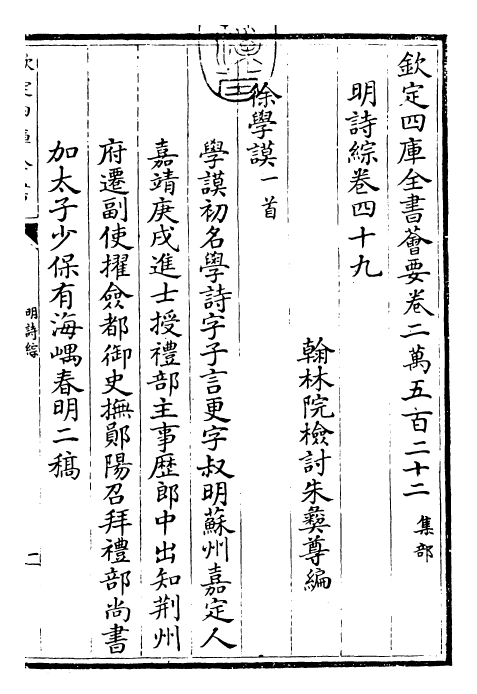 欽定四庫全書薈要卷二萬五百二十二 集部
明詩綜卷四十九
翰林院檢討朱彝尊編
徐學謨一首
學謨初名學詩字子言更字叔明蘇州嘉定人
嘉靖庚戌進士授禮部主事歴郎中出知荆州
府遷副使擢僉都御史撫鄖陽召拜禮部尚書
加太子少保有海嵎春明二稿
明詩綜